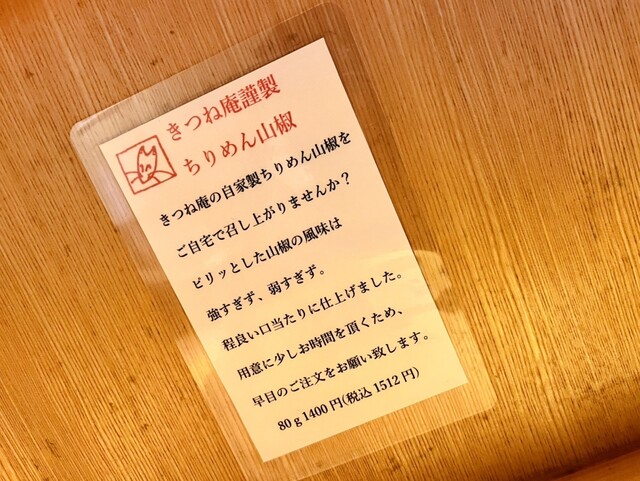 きつね庵謹製
ちりめん山椒
きつね庵の自家製ちりめん山椒を
ご自宅で召し上がりませんか？
ピリッとした山椒の風味は
強すぎず、弱すぎず。
程良い口当たりに仕上げました。
用意に少しお時間を頂くため、
早目のご注文をお願い致します。
80ｇ1400円(税込1512円)